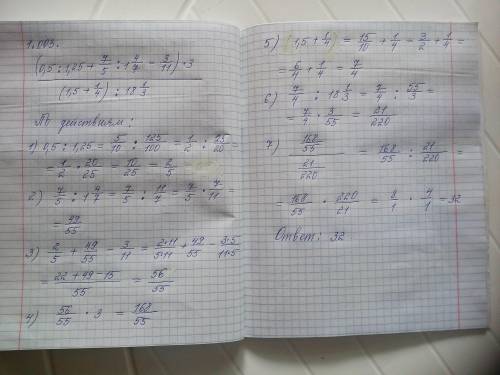 1.003.
(0,5 : 1,25 + 7/5 : 1 4/7 − 3/11) · 3
(1,5 + 1/4) : 18 1/3
По действиям:
1) 0,5 : 1,25 = 5/10 : 125/100 = 1/2 : 25/20 =
= 1/2 · 20/25 = 10/25 = 2/5
2) 7/5 : 1 4/7 = 7/5 : 11/7 = 7/5 · 7/11 =
= 49/55
3) 2/5 + 49/55 − 3/11 = 2·11/5·11 + 49/55 − 3·5/11·5
= 22 + 49 − 15/55 = 56/55
4) 56/55 · 3 = 168/55
5) (1,5 + 1/4) = 15/10 + 1/4 = 3/2 + 1/4 =
= 6/4 + 1/4 = 7/4
6) 7/4 : 18 1/3 = 7/4 : 55/3 =
= 7/4 · 3/55 = 21/220
7) 168/55 / 21/220 = 168/55 : 21/220 =
= 168/55 · 220/21 = 8/1 · 4/1 = 32
Ответ: 32